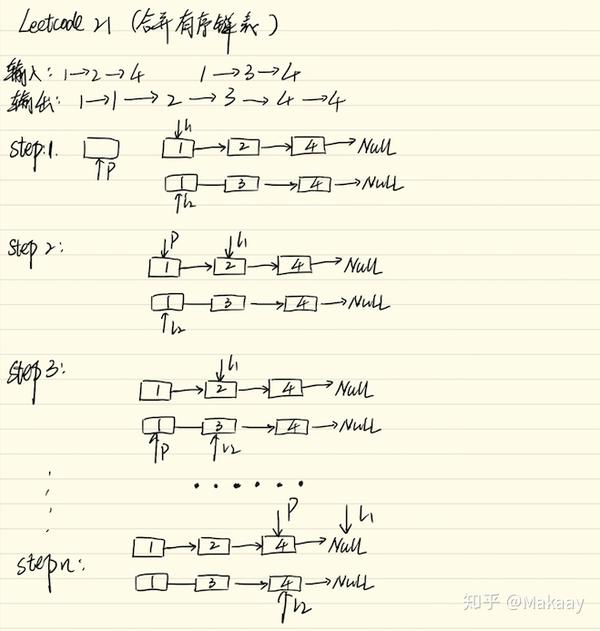 Leetcode 21 (合并有序链表)
输入: 1→2→4 1→3→4
输出: 1→1→2→3→4→4
step:1. P l1 1→2→4→Null
1→3→4→Null l2
step 2: P l1
1→2→4→Null
1→3→4→Null
l2
step 3: l1
1→2→4→Null
1→3→4→Null
P l2
......
P l1
stepn: 1→2→4→Null
1→3→4→Null
l2
知乎 @Makaay